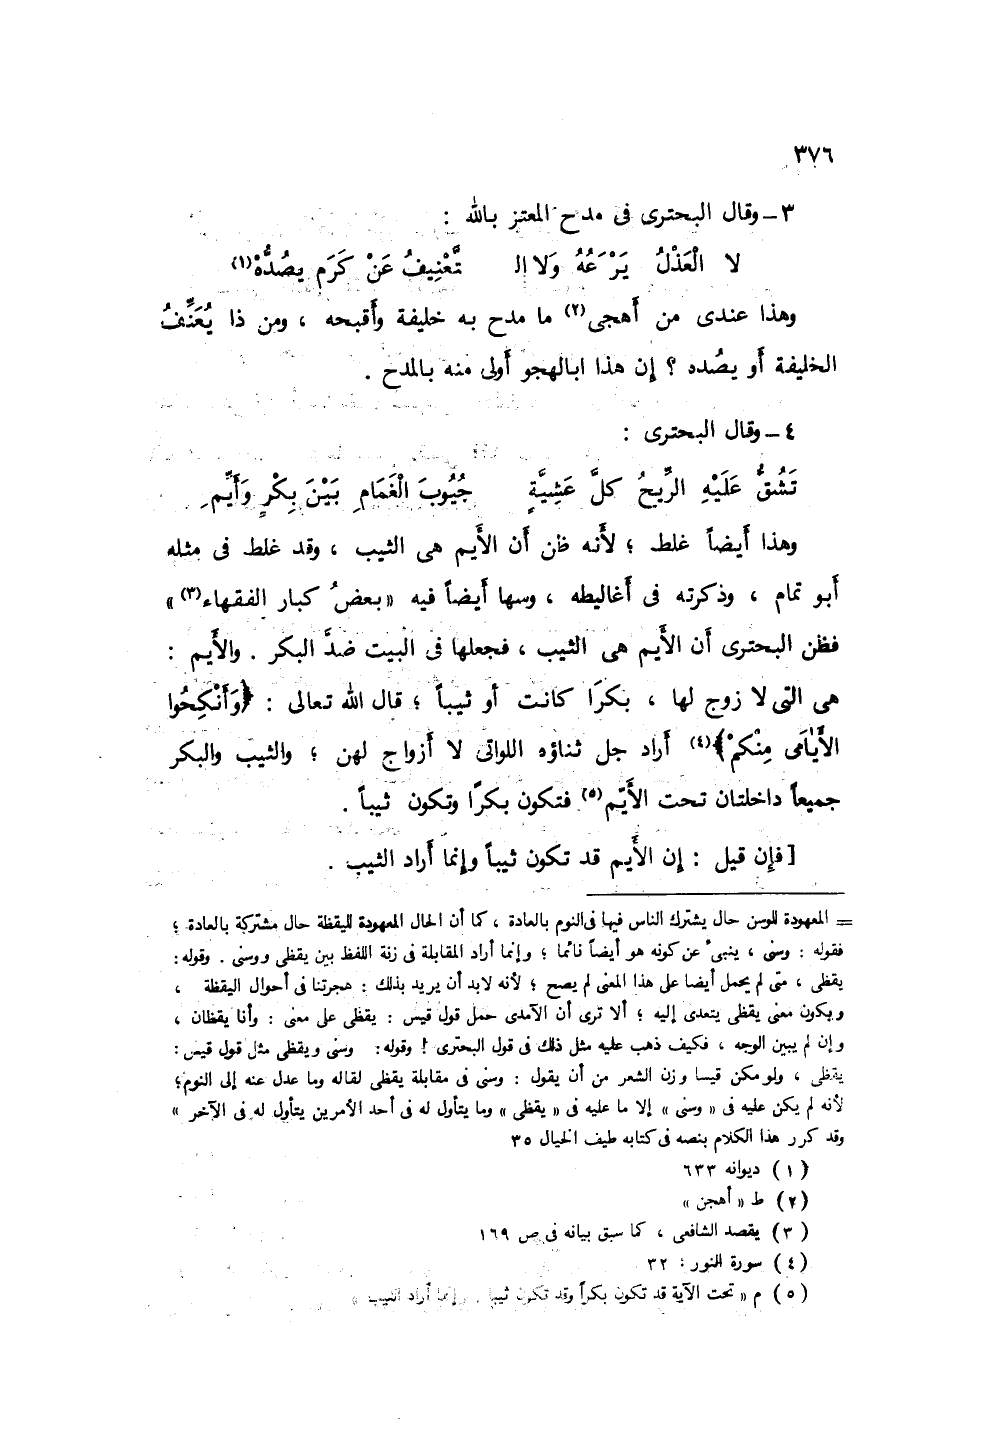 ٣٧٦
٣ – وقال البحترى فى مدح المعتز بالله :
لا الْعَذْلُ يَرْدَعُهُ وَلا الـ تَّعْنِيفُ عَنْ كَرَمٍ يصُدُّهْ(١)
وهذا عندى من أَهجى(٢) ما مدح به خليفة وأَقبحه ، ومن ذا يُعَنِّفُ
الخليفة أَو يصُده ؟ إن هذا بالهجو أَولى منه بالمدح .
٤ – وقال البحترى :
تَشُقُّ عَلَيْهِ الرِّيحُ كلَّ عَشِيَّةٍ جُيُوبَ الْغَمَامِ بَيْنَ بِكْرٍ وَأَيِّمِ
وهذا أَيضاً غلط ؛ لأَنه ظن أَن الأَيم هى الثيب ، وقد غلط فى مثله
أَبو تمام ، وذكرته فى أَغاليطه ، وسها أَيضاً فيه «بعضُ كبار الفقهاء(٣)»
فظن البحترى أَن الأَيم هى الثيب ، فجعلها فى البيت ضدَّ البكر . والأَيم :
هى التى لا زوج لها ، بكرًا كانت أو ثيباً ؛ قال الله تعالى : {وَأَنْكِحُوا
الأَيَامَى مِنْكمْ}(٤) أَراد جل ثناؤه اللواتى لا أَزواج لهن ؛ والثيب والبكر
جميعاً داخلتان تحت الأَيِّم(٥) فتكون بكرًا وتكون ثيباً .
[فإن قيل : إن الأَيم قد تكون ثيباً وإنما أَراد الثيب .
= المعهودة للوسن حال يشترك الناس فيها فى النوم بالعادة ، كما أن الحال المعهودة لليقظة حال مشتركة بالعادة ؛
فقوله : وسنى ، ينبىء عن كونه هو أيضاً نائما ؛ وإنما أراد المقابلة فى زنة اللفظ بين يقظى ووسنى . وقوله :
يقظى ، متى لم يحمل أيضا على هذا المعنى لم يصح ؛ لأنه لابد أن يريد بذلك : هجرتنا فى أحوال اليقظة ،
ويكون معنى يقظى يتعدى إليه ؛ ألا ترى أن الآمدى حمل قول قيس : يقظى على معنى : وأنا يقظان ،
وإن لم يبين الوجه ، فكيف ذهب عليه مثل ذلك فى قول البحترى ! وقوله : وسنى ويقظى مثل قول قيس :
يقظى ، ولو مكن قيسا وزن الشعر من أن يقول : وسنى فى مقابلة يقظى لقاله وما عدل عنه إلى النوم ؛
لأنه لم يكن عليه فى « وسنى » إلا ما عليه فى « يقظى » وما يتأول له فى أحد الأمرين يتأول له فى الآخر »
وقد كرر هذا الكلام بنصه فى كتابه طيف الخيال ٣٥
(١) ديوانه ٦٣٣
(٢) ط « أهجن »
(٣) يقصد الشافعى ، كما سبق بيانه فى ص ١٦٩
(٤) سورة النور : ٣٢
(٥) م « تحت الآية قد تكون بكراً وقد تكون ثيبا . وإنما أراد الثيب »